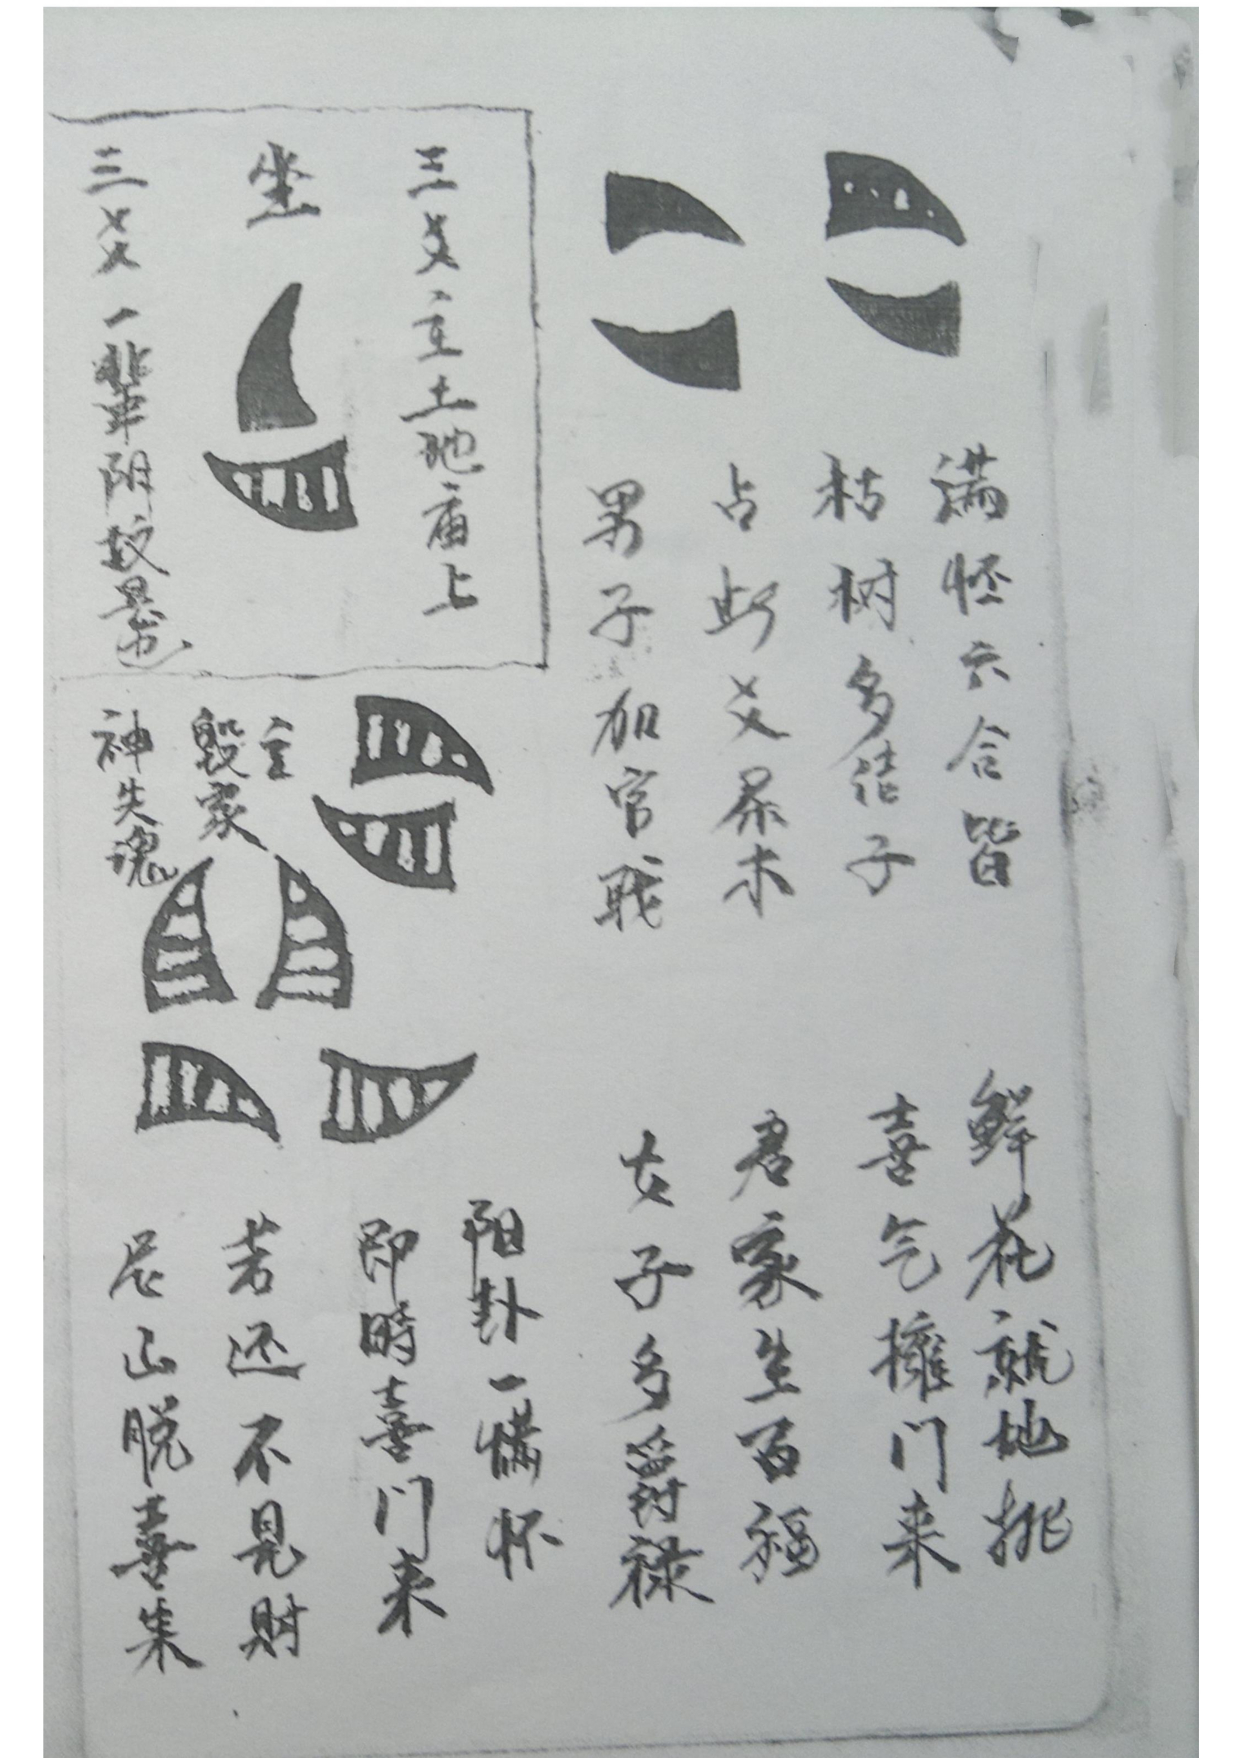 满怀六合皆
鲜花就地排
枯树多结子
喜气擁门来
占此爻
君家生百福
男子加官职
女子多爵禄
三爻立土地庙上
坐
三爻一辈阴
主
毁家
神失魂
阳卦一怀
即時喜门来
若还不見財
山脱喜来